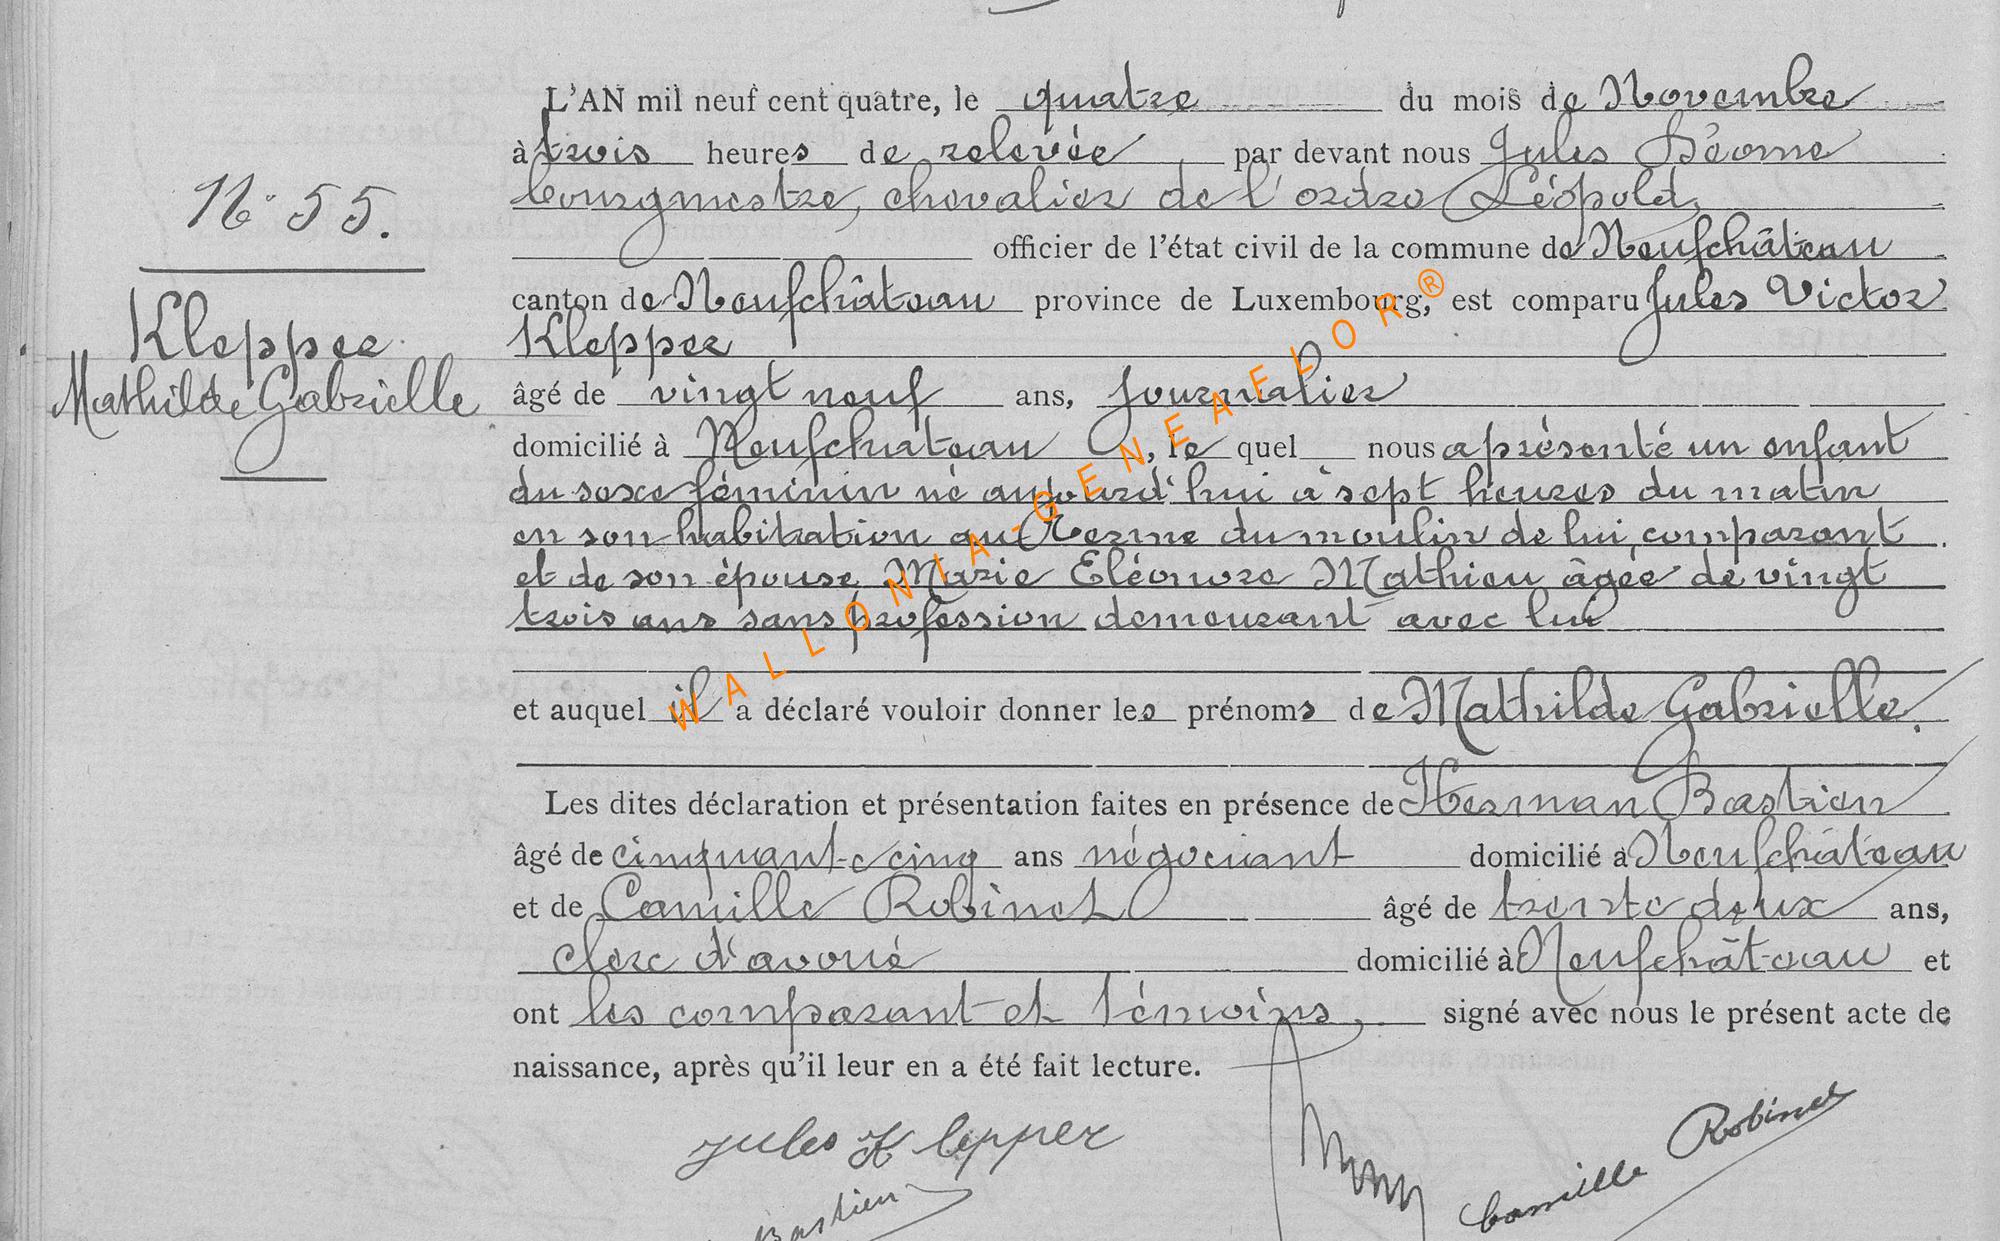 L'AN mil neuf cent quatre, le quatre du mois de Novembre
à trois heures de relevée, par devant nous Jules
bourgmestre, chevalier de l'ordre Léopold,
officier de l'état civil de la commune de Neufchâteau
N° 55.
canton de Neufchâteau province de Luxembourg, est comparu Jules Victor
Klepper
Klepper
Mathilde Gabrielle
âgé de vingt neuf ans, journalier
domicilié à Neufchateau, le quel nous a présenté un enfant
du sexe féminin né aujourd'hui à sept heures du matin
en son habitation au Terme du moulin de lui, comparant
et de son épouse, Marie Eléonore Mathieu âgée de vingt
trois ans sans profession demeurant avec lui
et auquel il a déclaré vouloir donner les prénoms de Mathilde Gabrielle.
Les dites déclaration et présentation faites en présence de Herman Bastien
âgé de cinquante cinq ans négociant domicilié à Neufchâteau
et de Camille Robinet âgé de trente deux ans,
clerc d'avoué domicilié à Neufchâteau et
ont les comparant et témoins, signé avec nous le présent acte de
naissance, après qu'il leur en a été fait lecture.
Jules Klepper
Bastien
Camille Robinet
WALLONIA-GENEALOR®